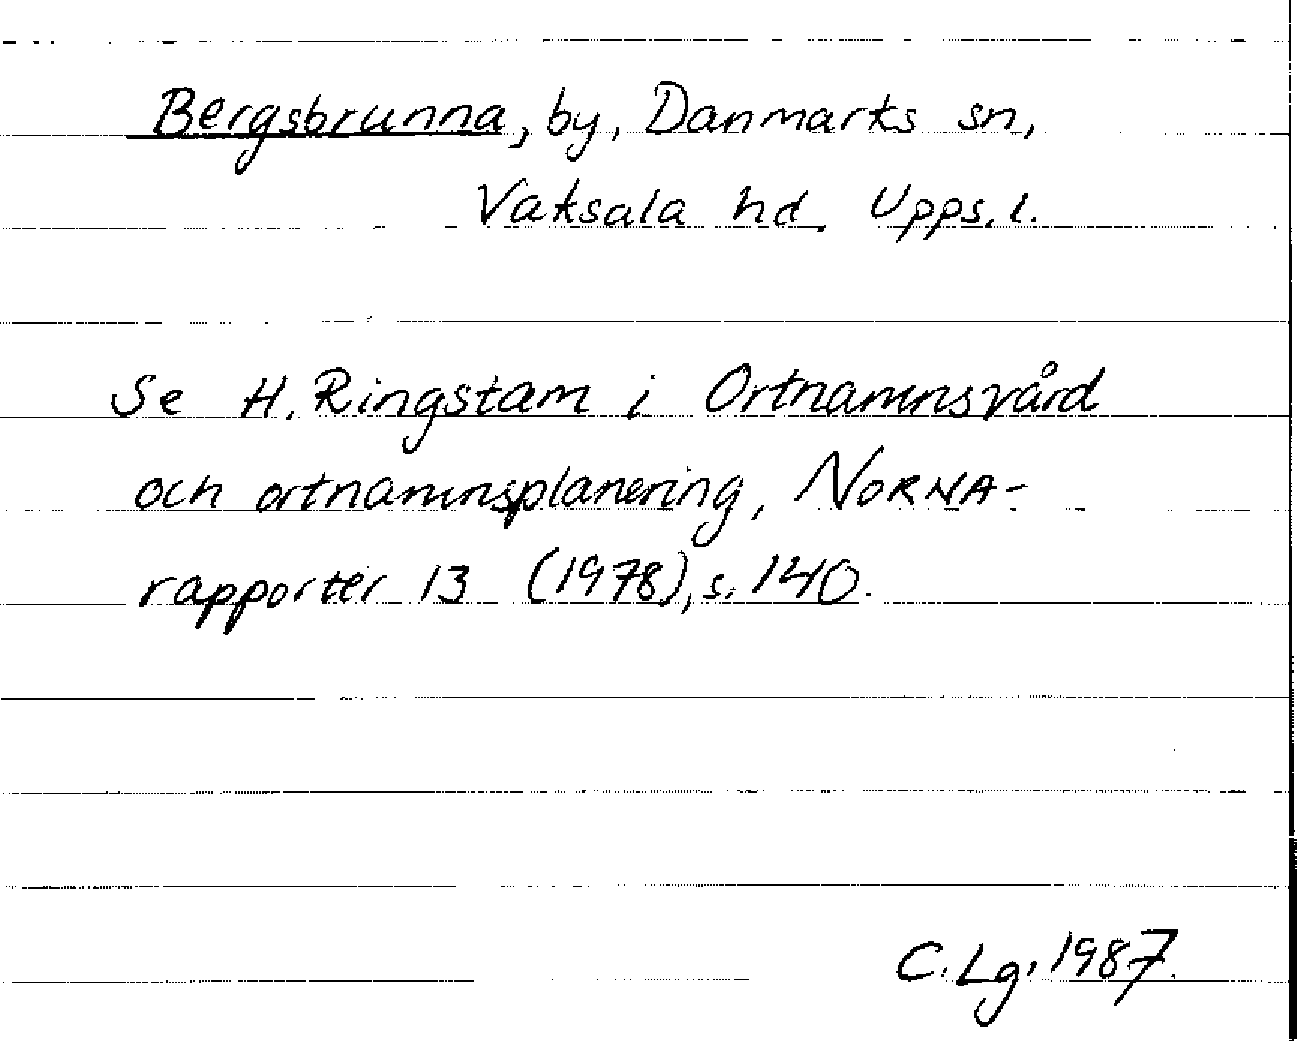 Bergsbrunna, by, Danmarks sn,
Vaksala hd, Upps. l.
Se H. Ringstam i Ortnamnsvård
och ortnamnsplanering, NORNA-
rapporter 13 (1978), s. 140.
C. Lg. 1987.